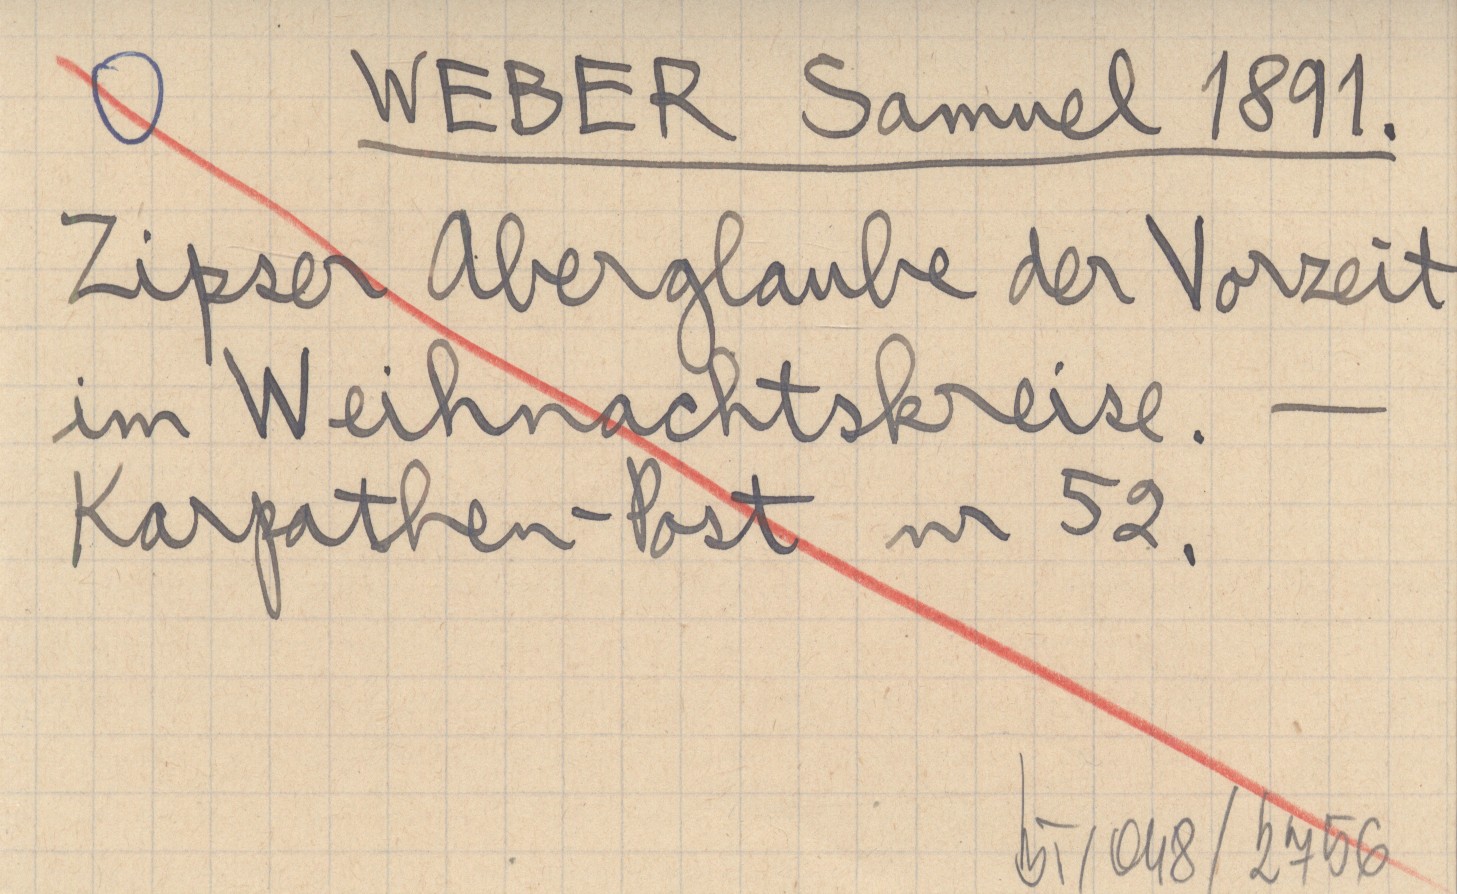 WEBER Samuel 1891.
Zipser Aberglaube der Vorzeit
im Weihnachtskreise. —
Karpathen-Post nr 52.
048/2756